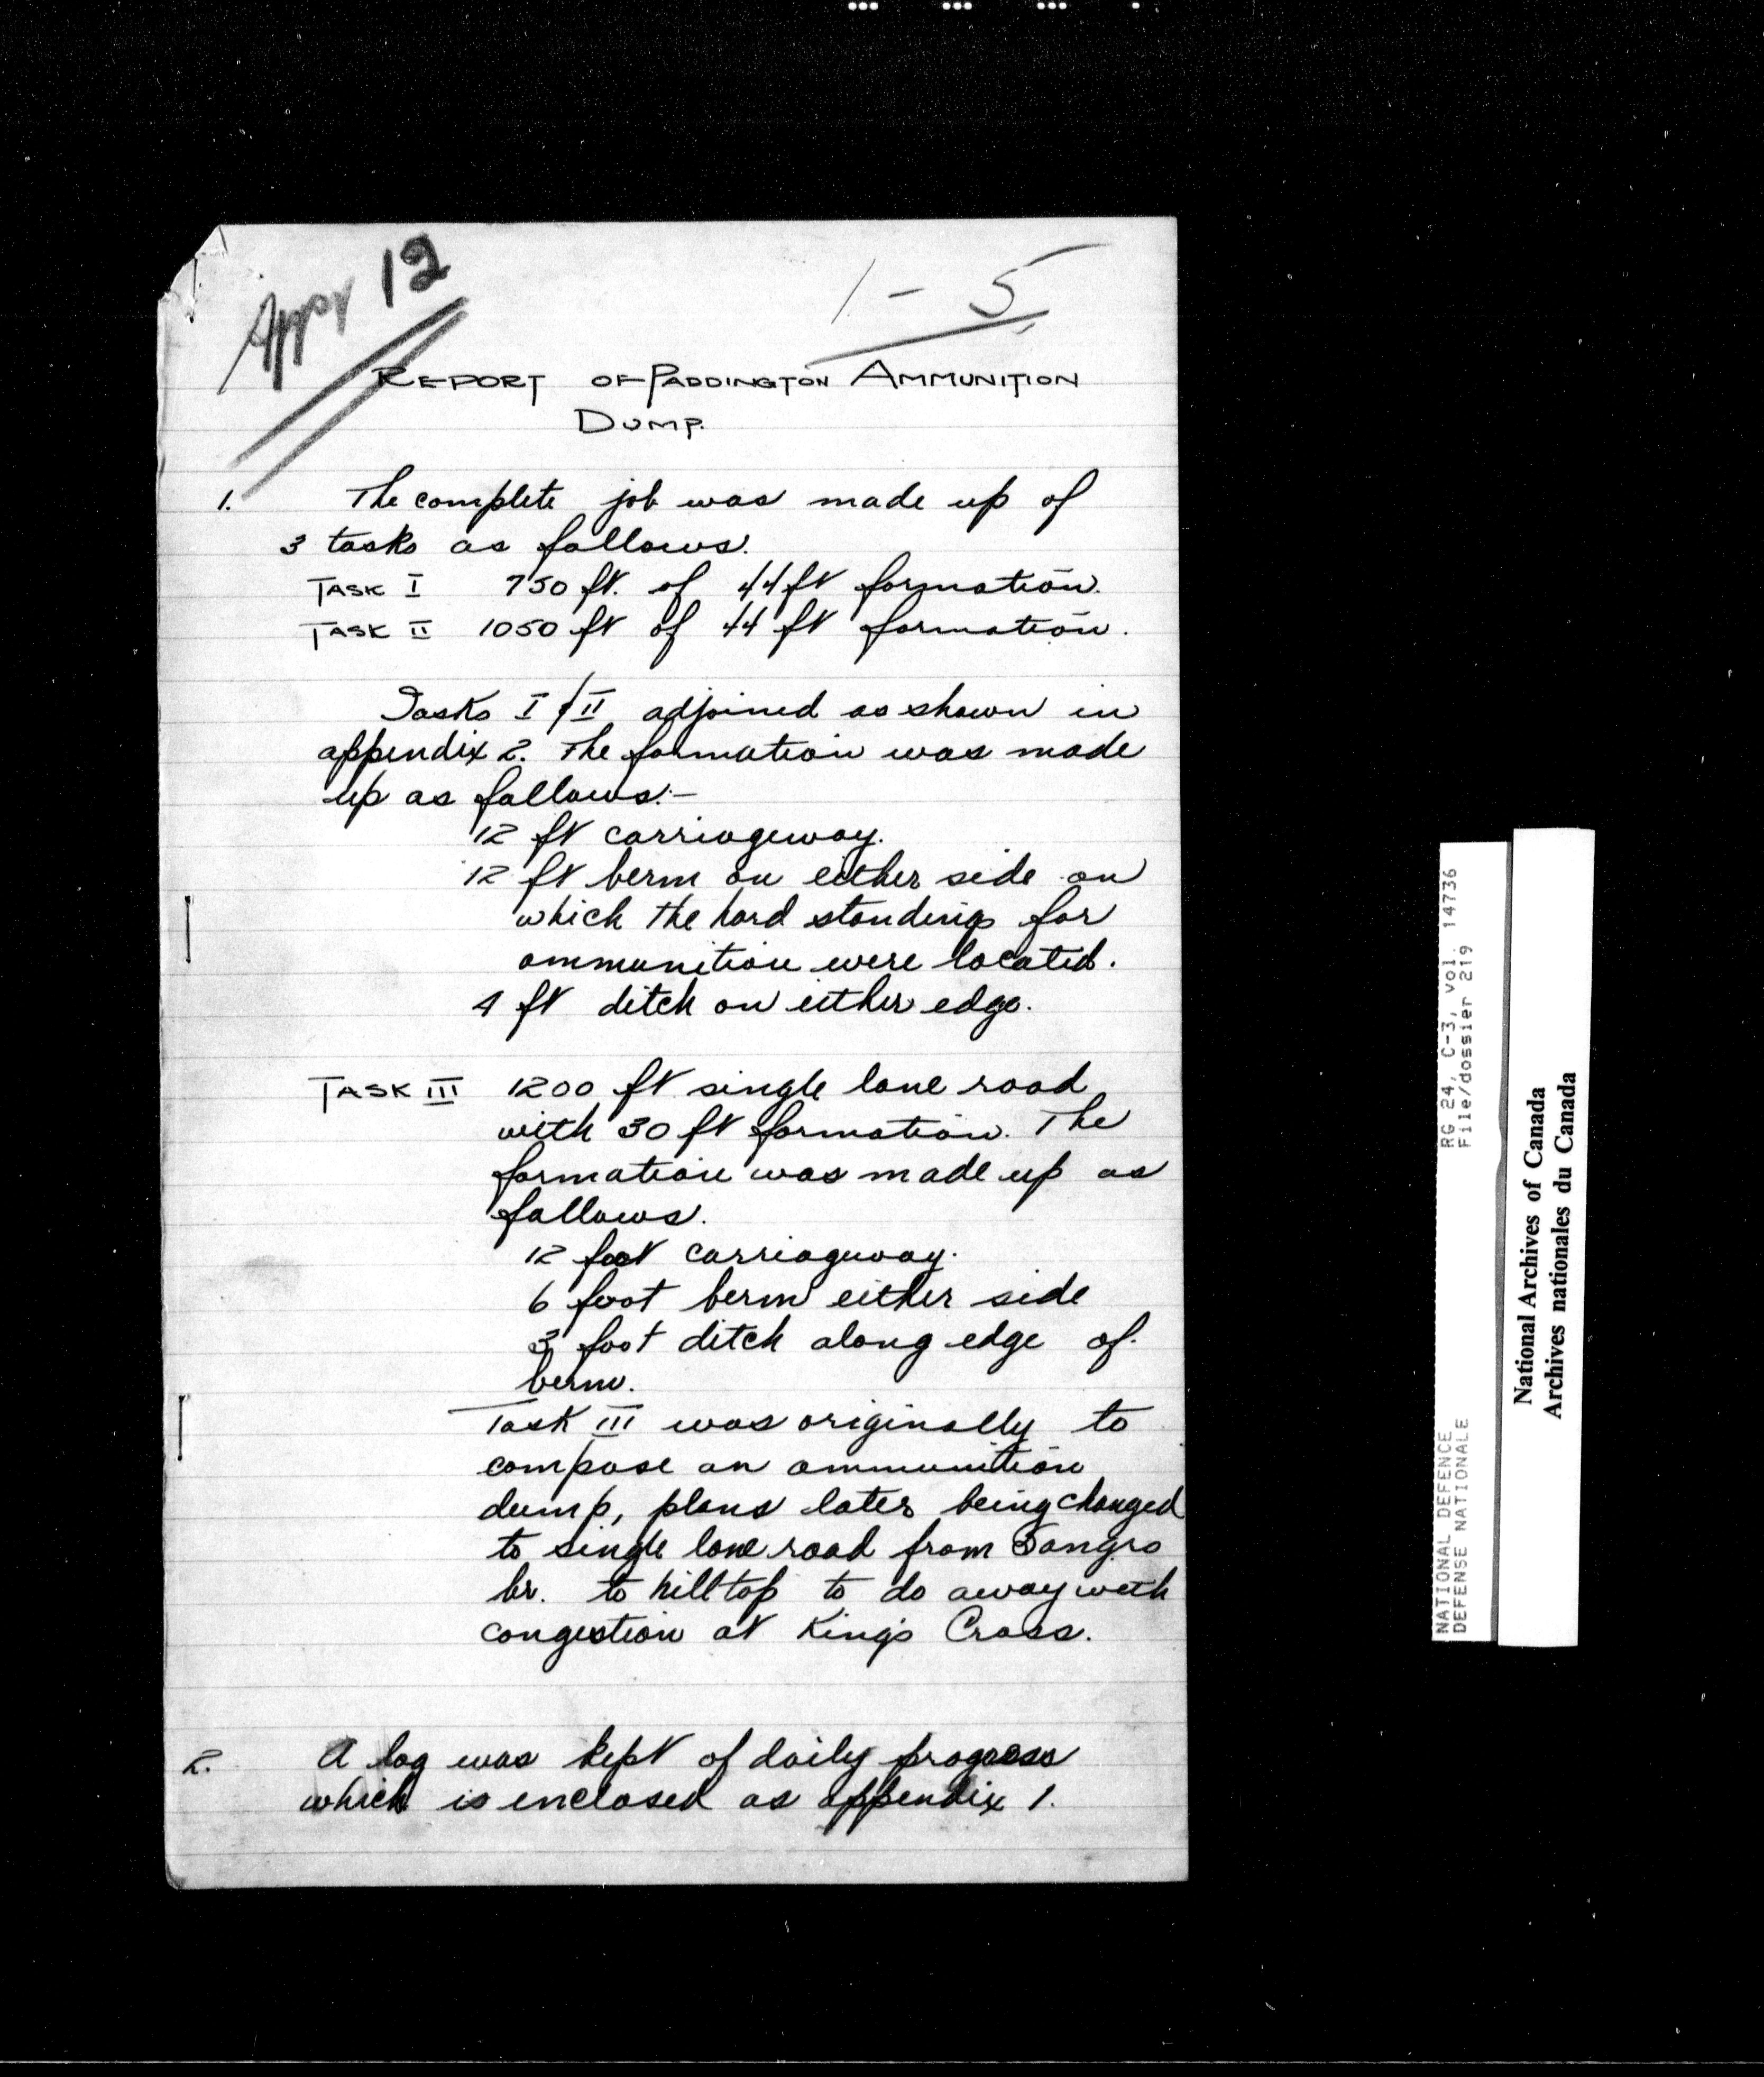 Appx 12
1 - 5
REPORT OF PADDINGTON AMMUNITION
DUMP.
1. The complete job was made up of
3 tasks as follows.
TASK I 750 ft. of 44 ft formation.
TASK II 1050 ft of 44 ft formation.
Tasks I & II adjoined as shown in
appendix 2. The formation was made
up as follows:-
12 ft carriageway.
12 ft berm on either side on
which the hard standings for
ammunition were located.
4 ft ditch on either edge.
TASK III 1200 ft single lane road
with 30 ft formation. The
formation was made up as
follows.
12 foot carriageway.
6 foot berm either side
3 foot ditch along edge of
berm.
Task III was originally to
compose an ammunition
dump, plans later being changed
to single lane road from Sangro
br. to hilltop to do away with
congestion at Kings Cross.
2. A log was kept of daily progress
which is enclosed as appendix 1.
RG 24, C-3, vol. 14736
File/dossier 219
NATIONAL DEFENCE
DEFENSE NATIONALE
National Archives of Canada
Archives nationales du Canada